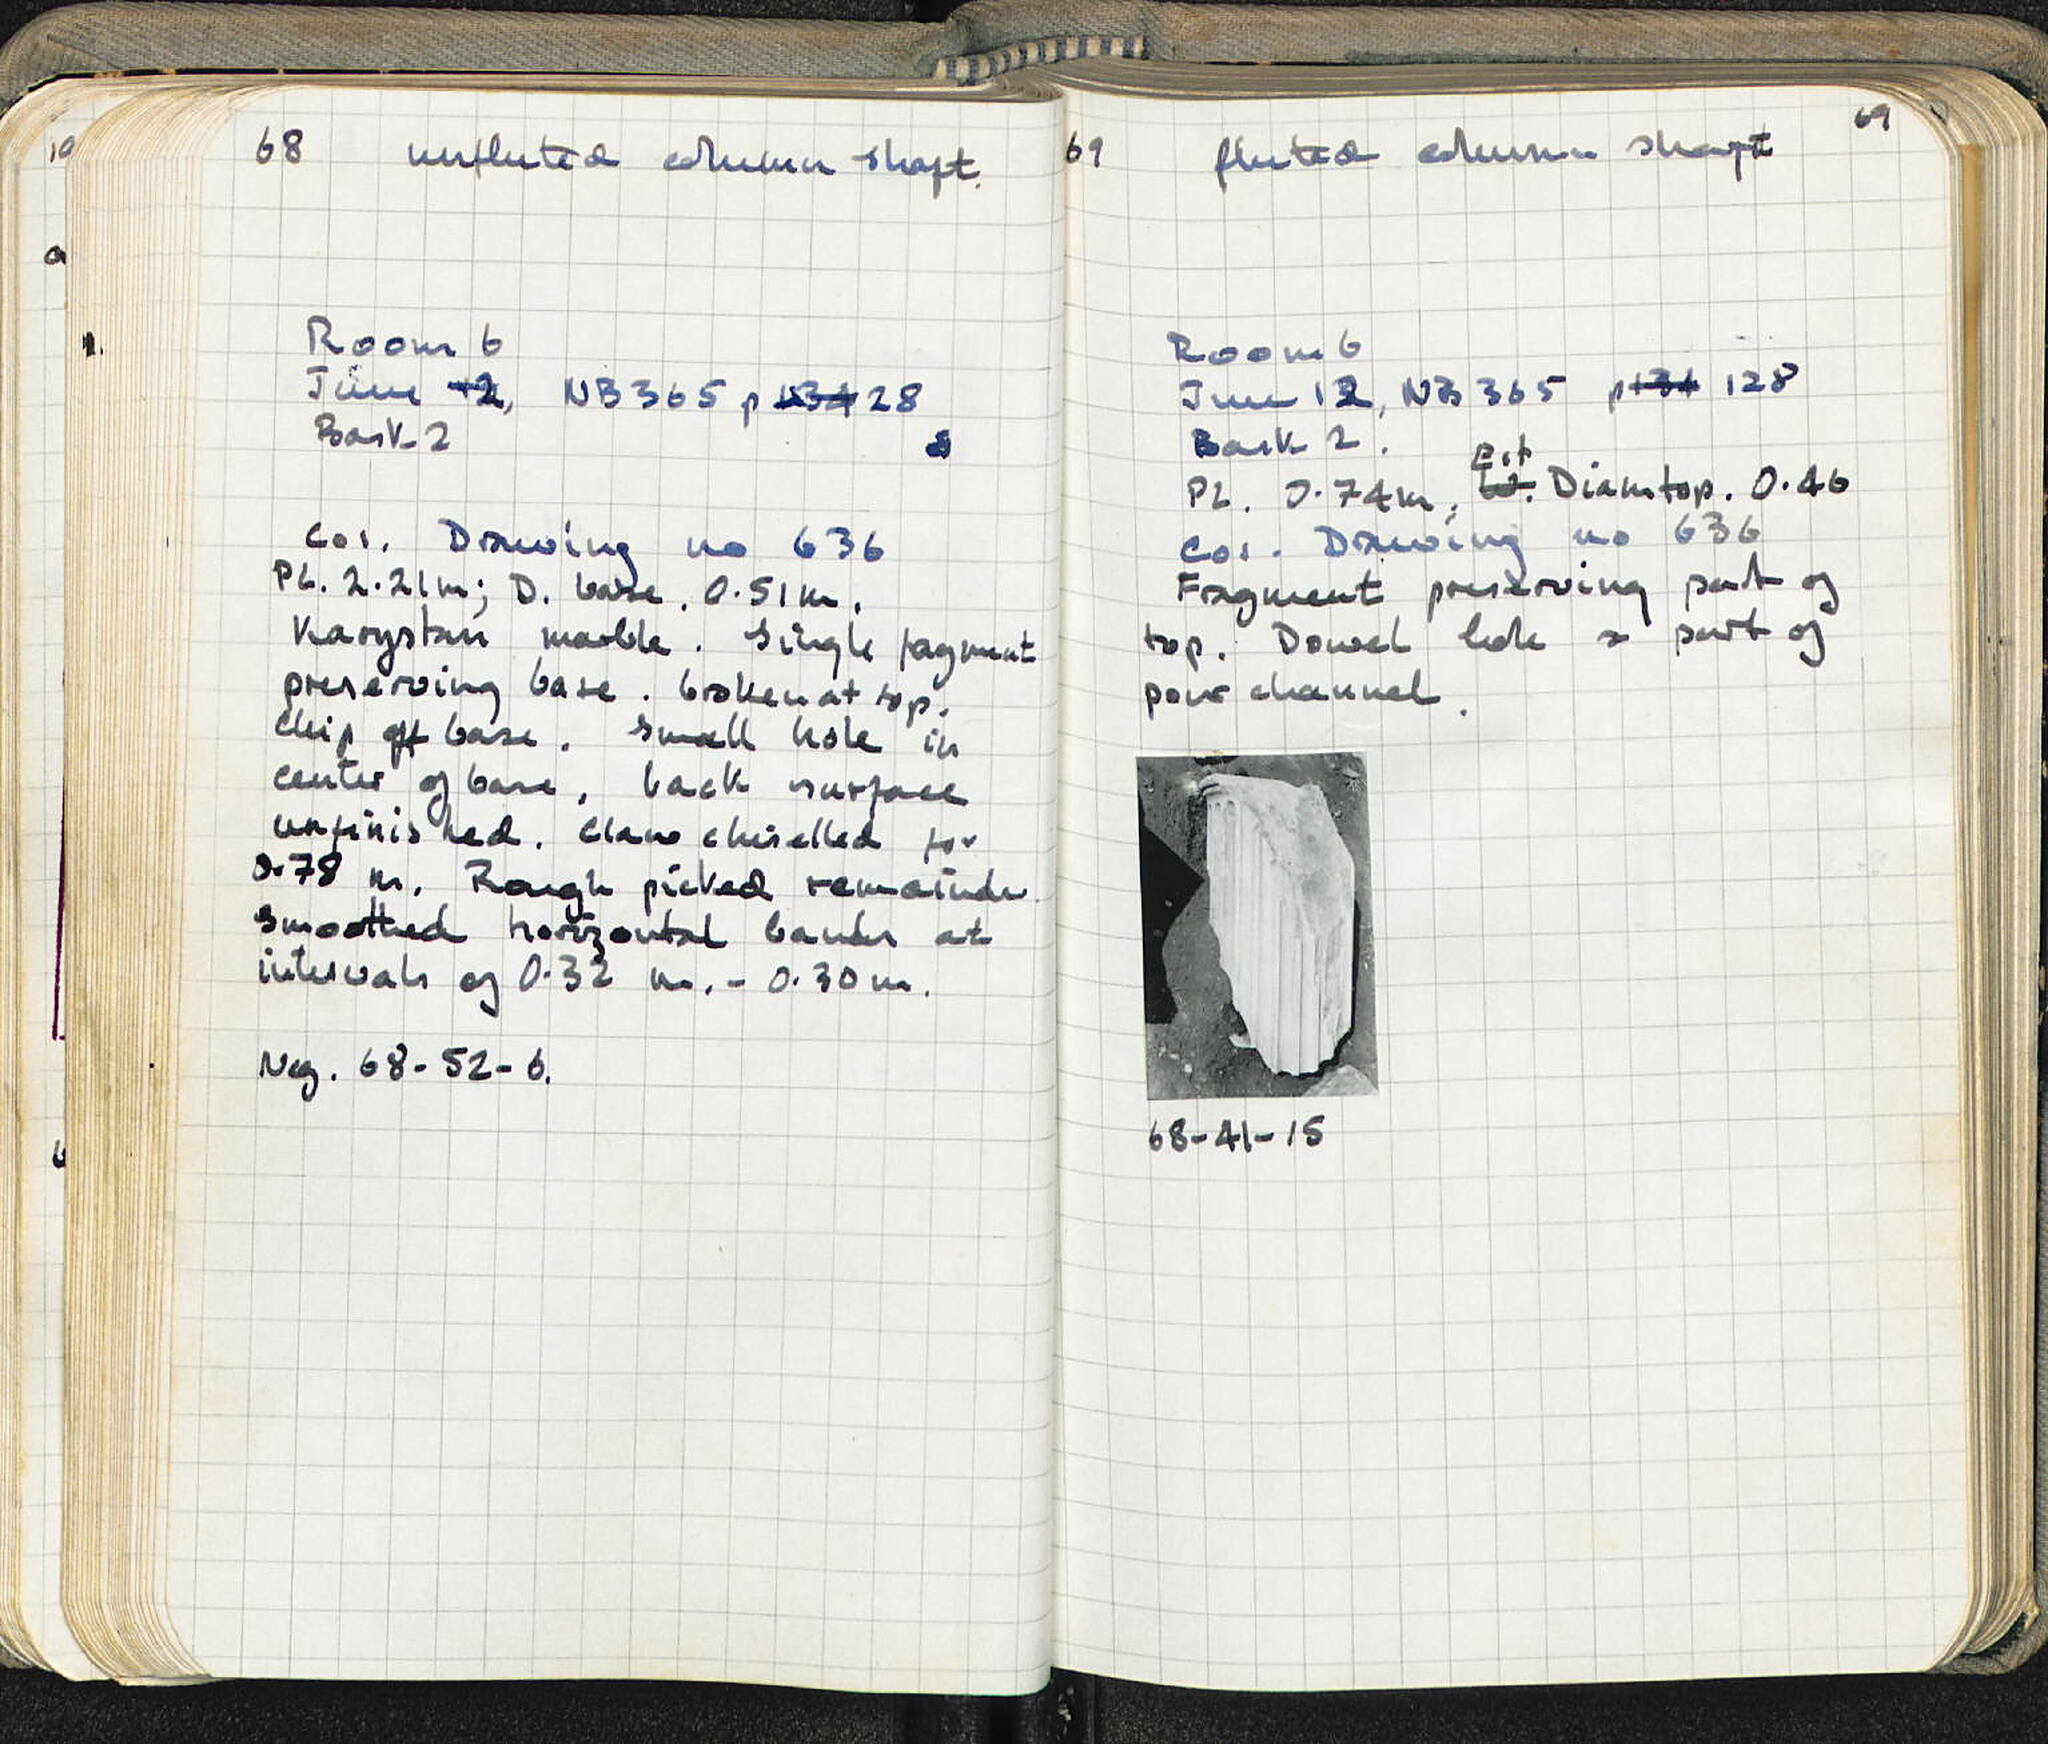 68 unfluted column shaft.
Room 6
June 12, NB 365 p 134 128
Bask 2
Cor. Drawing no 636
PL. 2.21m; D. base. 0.51m.
Karystan marble. Single fagment
preserving base. broken at top.
Chip off base. Small hole in
center of base, back surface
unfinished. Claw chiselled for
0.78 m. Rough picked remainder
smoothed horizontal bands at
intervals of 0.32 m. - 0.30m.
Neg. 68-52-6.
69 fluted column shaft 69
Room 6
June 12, NB 365 p 134 128
Bask 2.
Est
PL. 0.74m, W. Diam top. 0.46
Cor. Drawing no 636
Fragment preserving part of
top. Dowel hole & part of
pour channel.
68-41-15